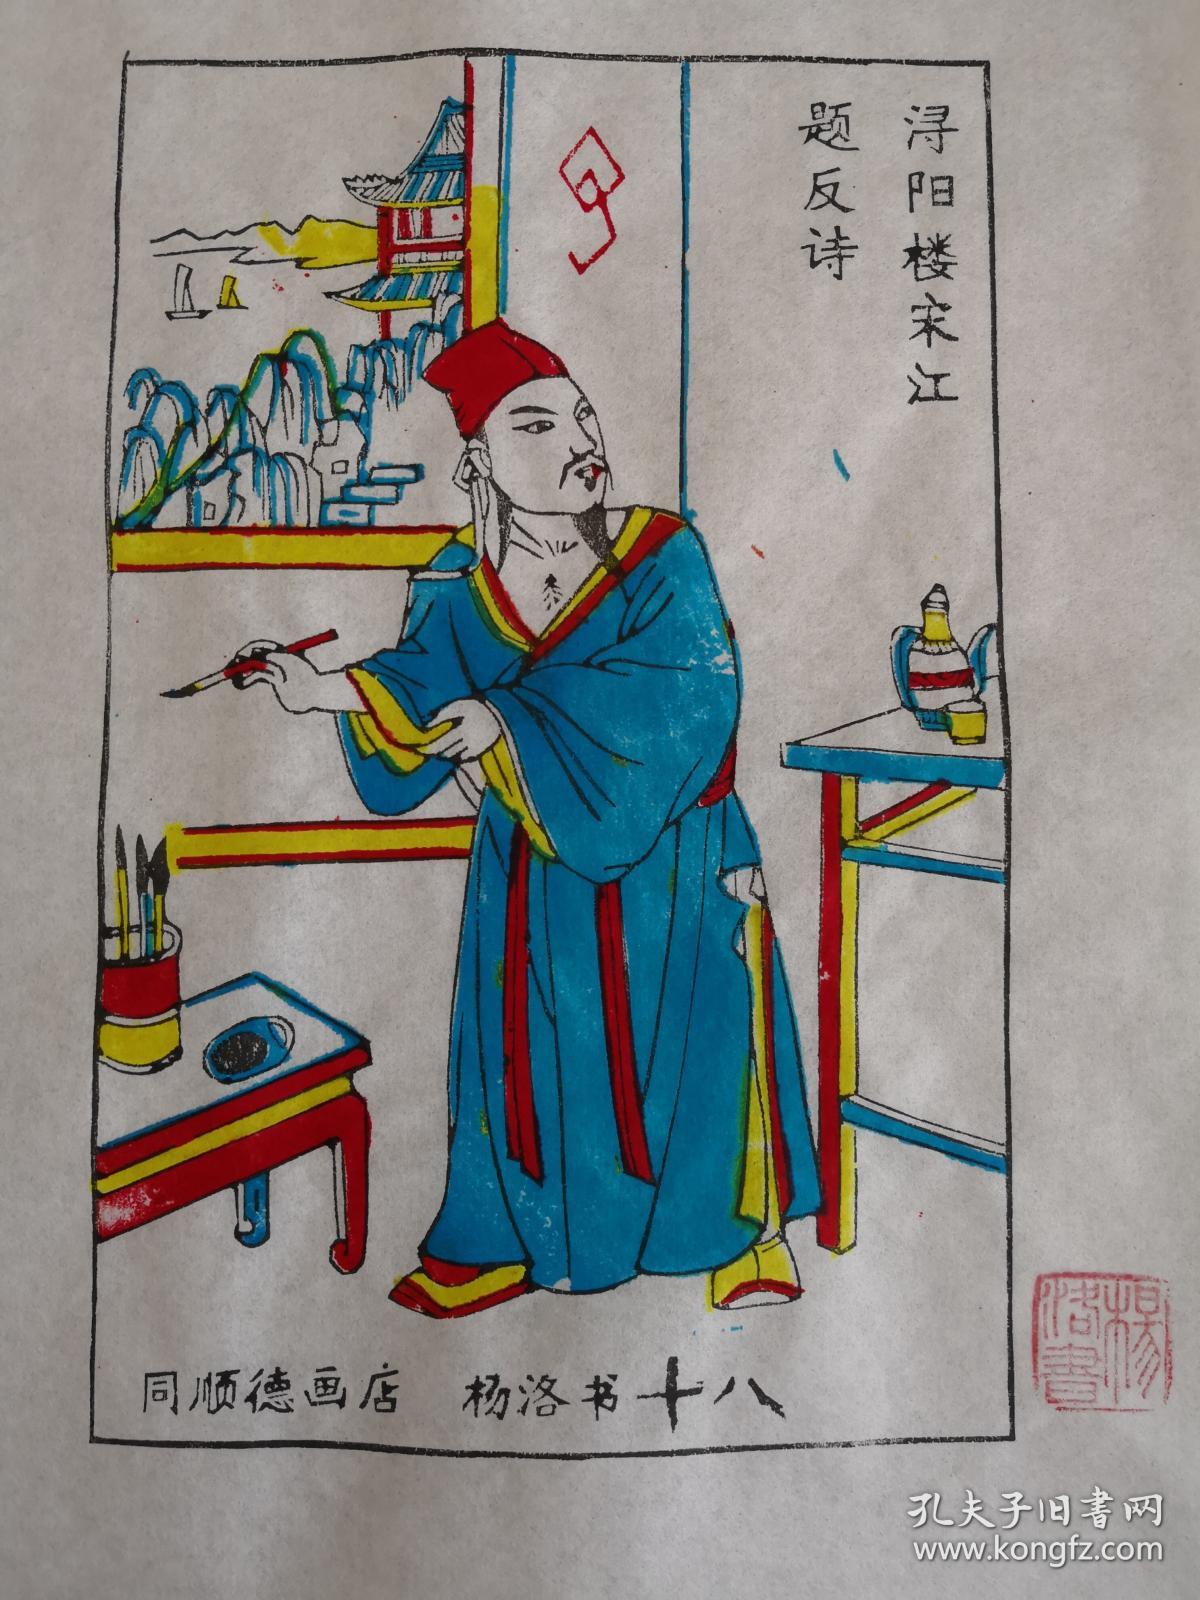 浔阳楼宋江
题反诗
同顺德画店 杨洛书十八
杨洛書
孔夫子旧书网
www.kongfz.com